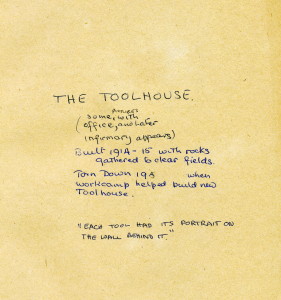 THE TOOLHOUSE.
(some, with
office, and later
infirmary appears)
Built 1914-15 with rocks
gathered to clear fields.
Torn Down 195 when
workcamp helped build new
Toolhouse.
"EACH TOOL HAD ITS PORTRAIT ON
THE WALL BEHIND IT."